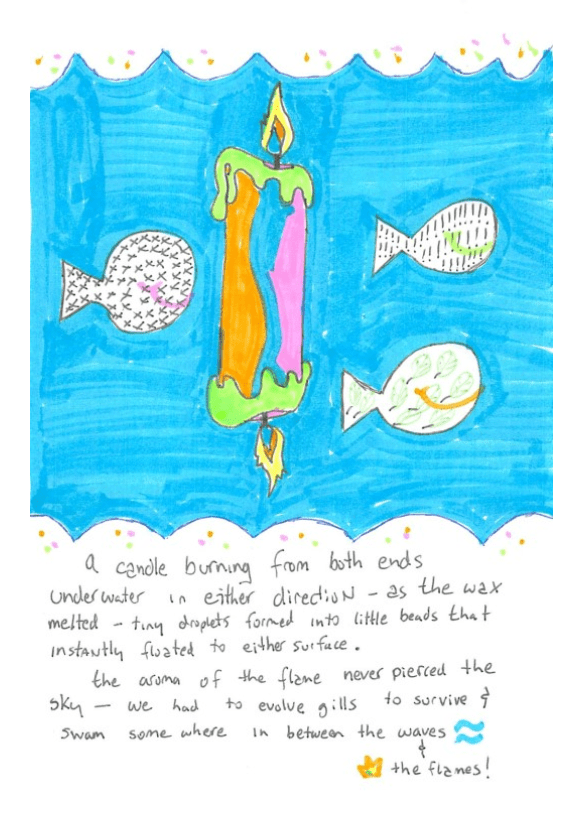 a candle burning from both ends
underwater in either direction - as the wax
melted - tiny droplets formed into little beads that
instantly floated to either surface.
the aroma of the flame never pierced the
sky - we had to evolve gills to survive &
swam some where in between the waves
&
the flames!